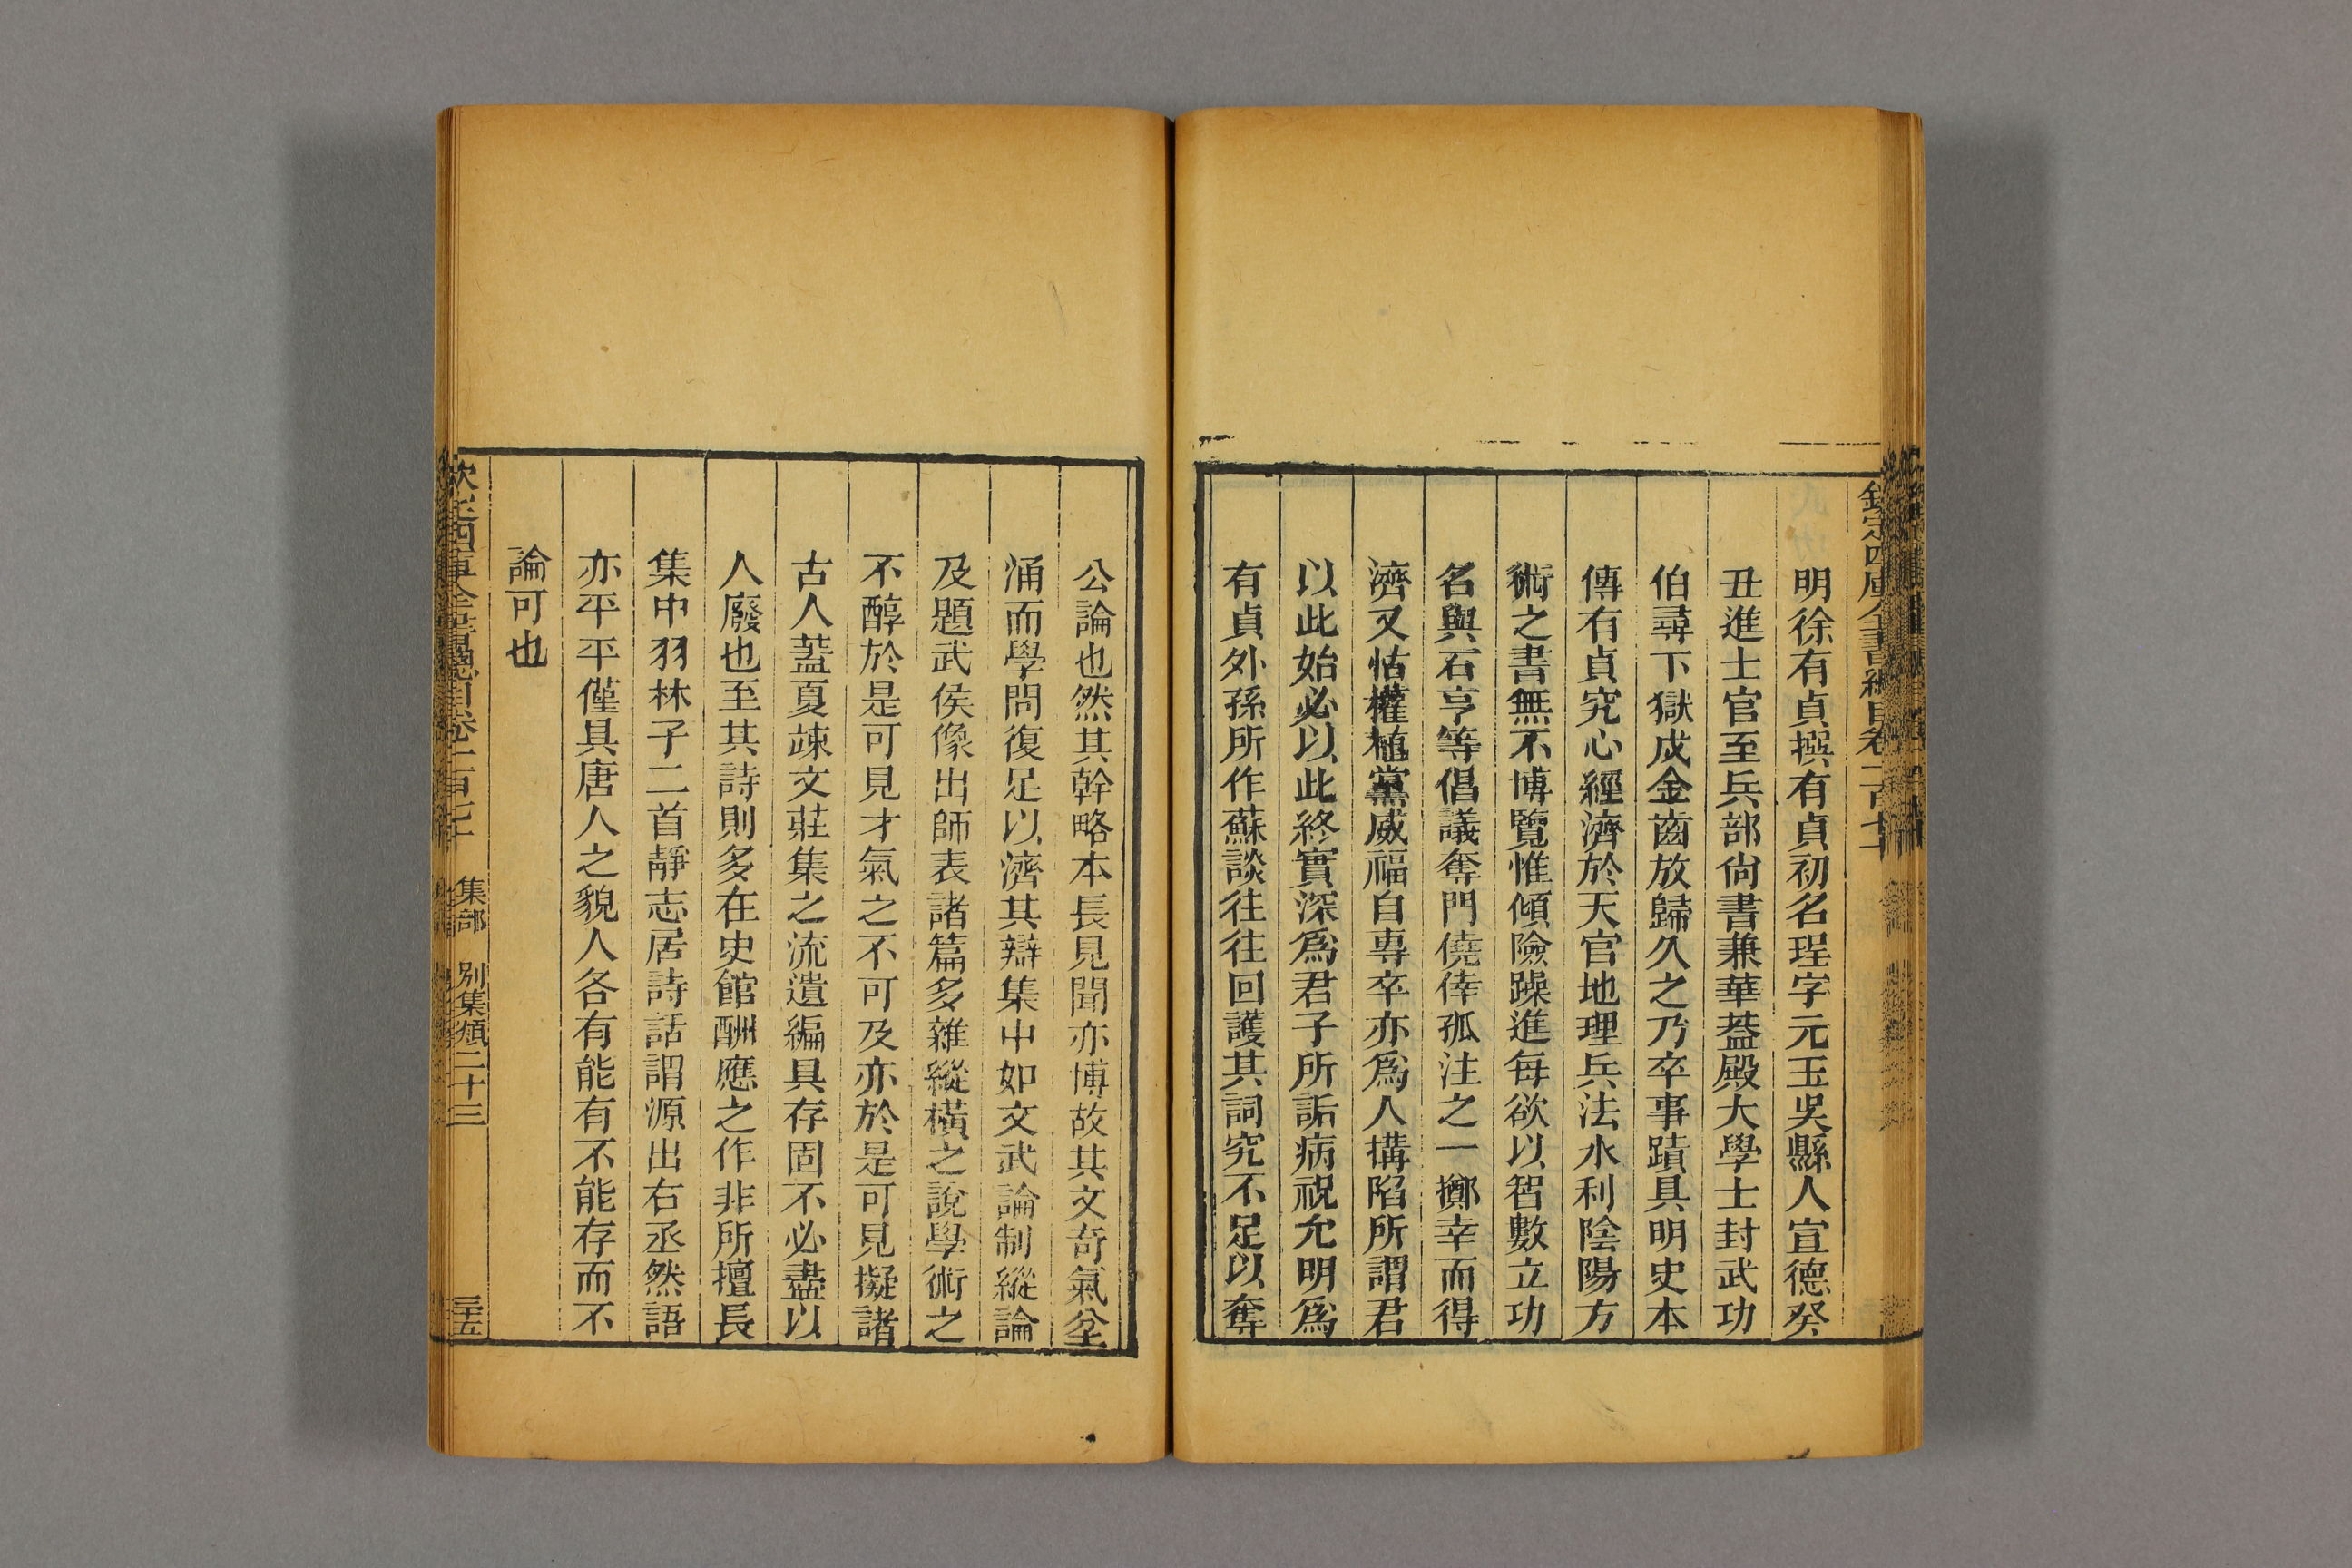 欽定四庫全書總目卷一百七十
明徐有貞撰有貞初名珵字元玉吳縣人宣德癸
丑進士官至兵部尙書兼華葢殿大學士封武功
伯尋下獄戍金齒放歸久之乃卒事蹟具明史本
傳有貞究心經濟於天官地理兵法水利陰陽方
術之書無不博覽惟傾險躁進每欲以智數立功
名與石亨等倡議奪門僥倖孤注之一擲幸而得
濟又怙權植黨威福自專卒亦爲人搆陷所謂君
以此始必以此終實深爲君子所詬病祝允明爲
有貞外孫所作蘇談往往回護其詞究不足以奪
公論也然其幹略本長見聞亦博故其文奇氣坌
涌而學問復足以濟其辯集中如文武論制縱論
及題武侯像出師表諸篇多雜縱橫之說學術之
不醇於是可見才氣之不可及亦於是可見擬諸
古人蓋夏竦文莊集之流遺編具存固不必盡以
人廢也至其詩則多在史館酬應之作非所擅長
集中羽林子二首靜志居詩話謂源出右丞然語
亦平平僅具唐人之貌人各有能有不能存而不
論可也
欽定四庫全書總目卷一百七十 集部 別集類二十三 三五